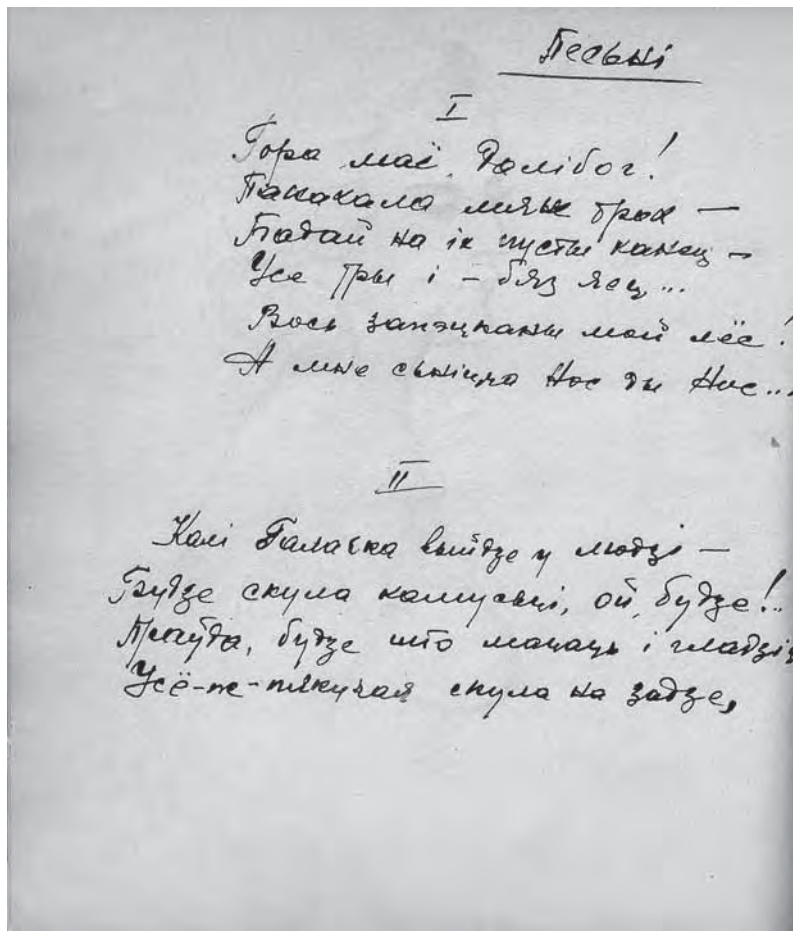 Песьні
I
Гора маё, далібог!
Пакахала мяне трох —
Падай на іх пусты канец —
Усе тры і – бяз яец...
Вось запэцканы мой лёс!
А мне сьніцца Нос ды Нос...
II
Калі Галачка выйдзе у людзі —
Будзе скула камусьці, ой, будзе!..
Праўда, будзе што мацаць і гладзіць
Усё-ж-пякучая скула на задзе,